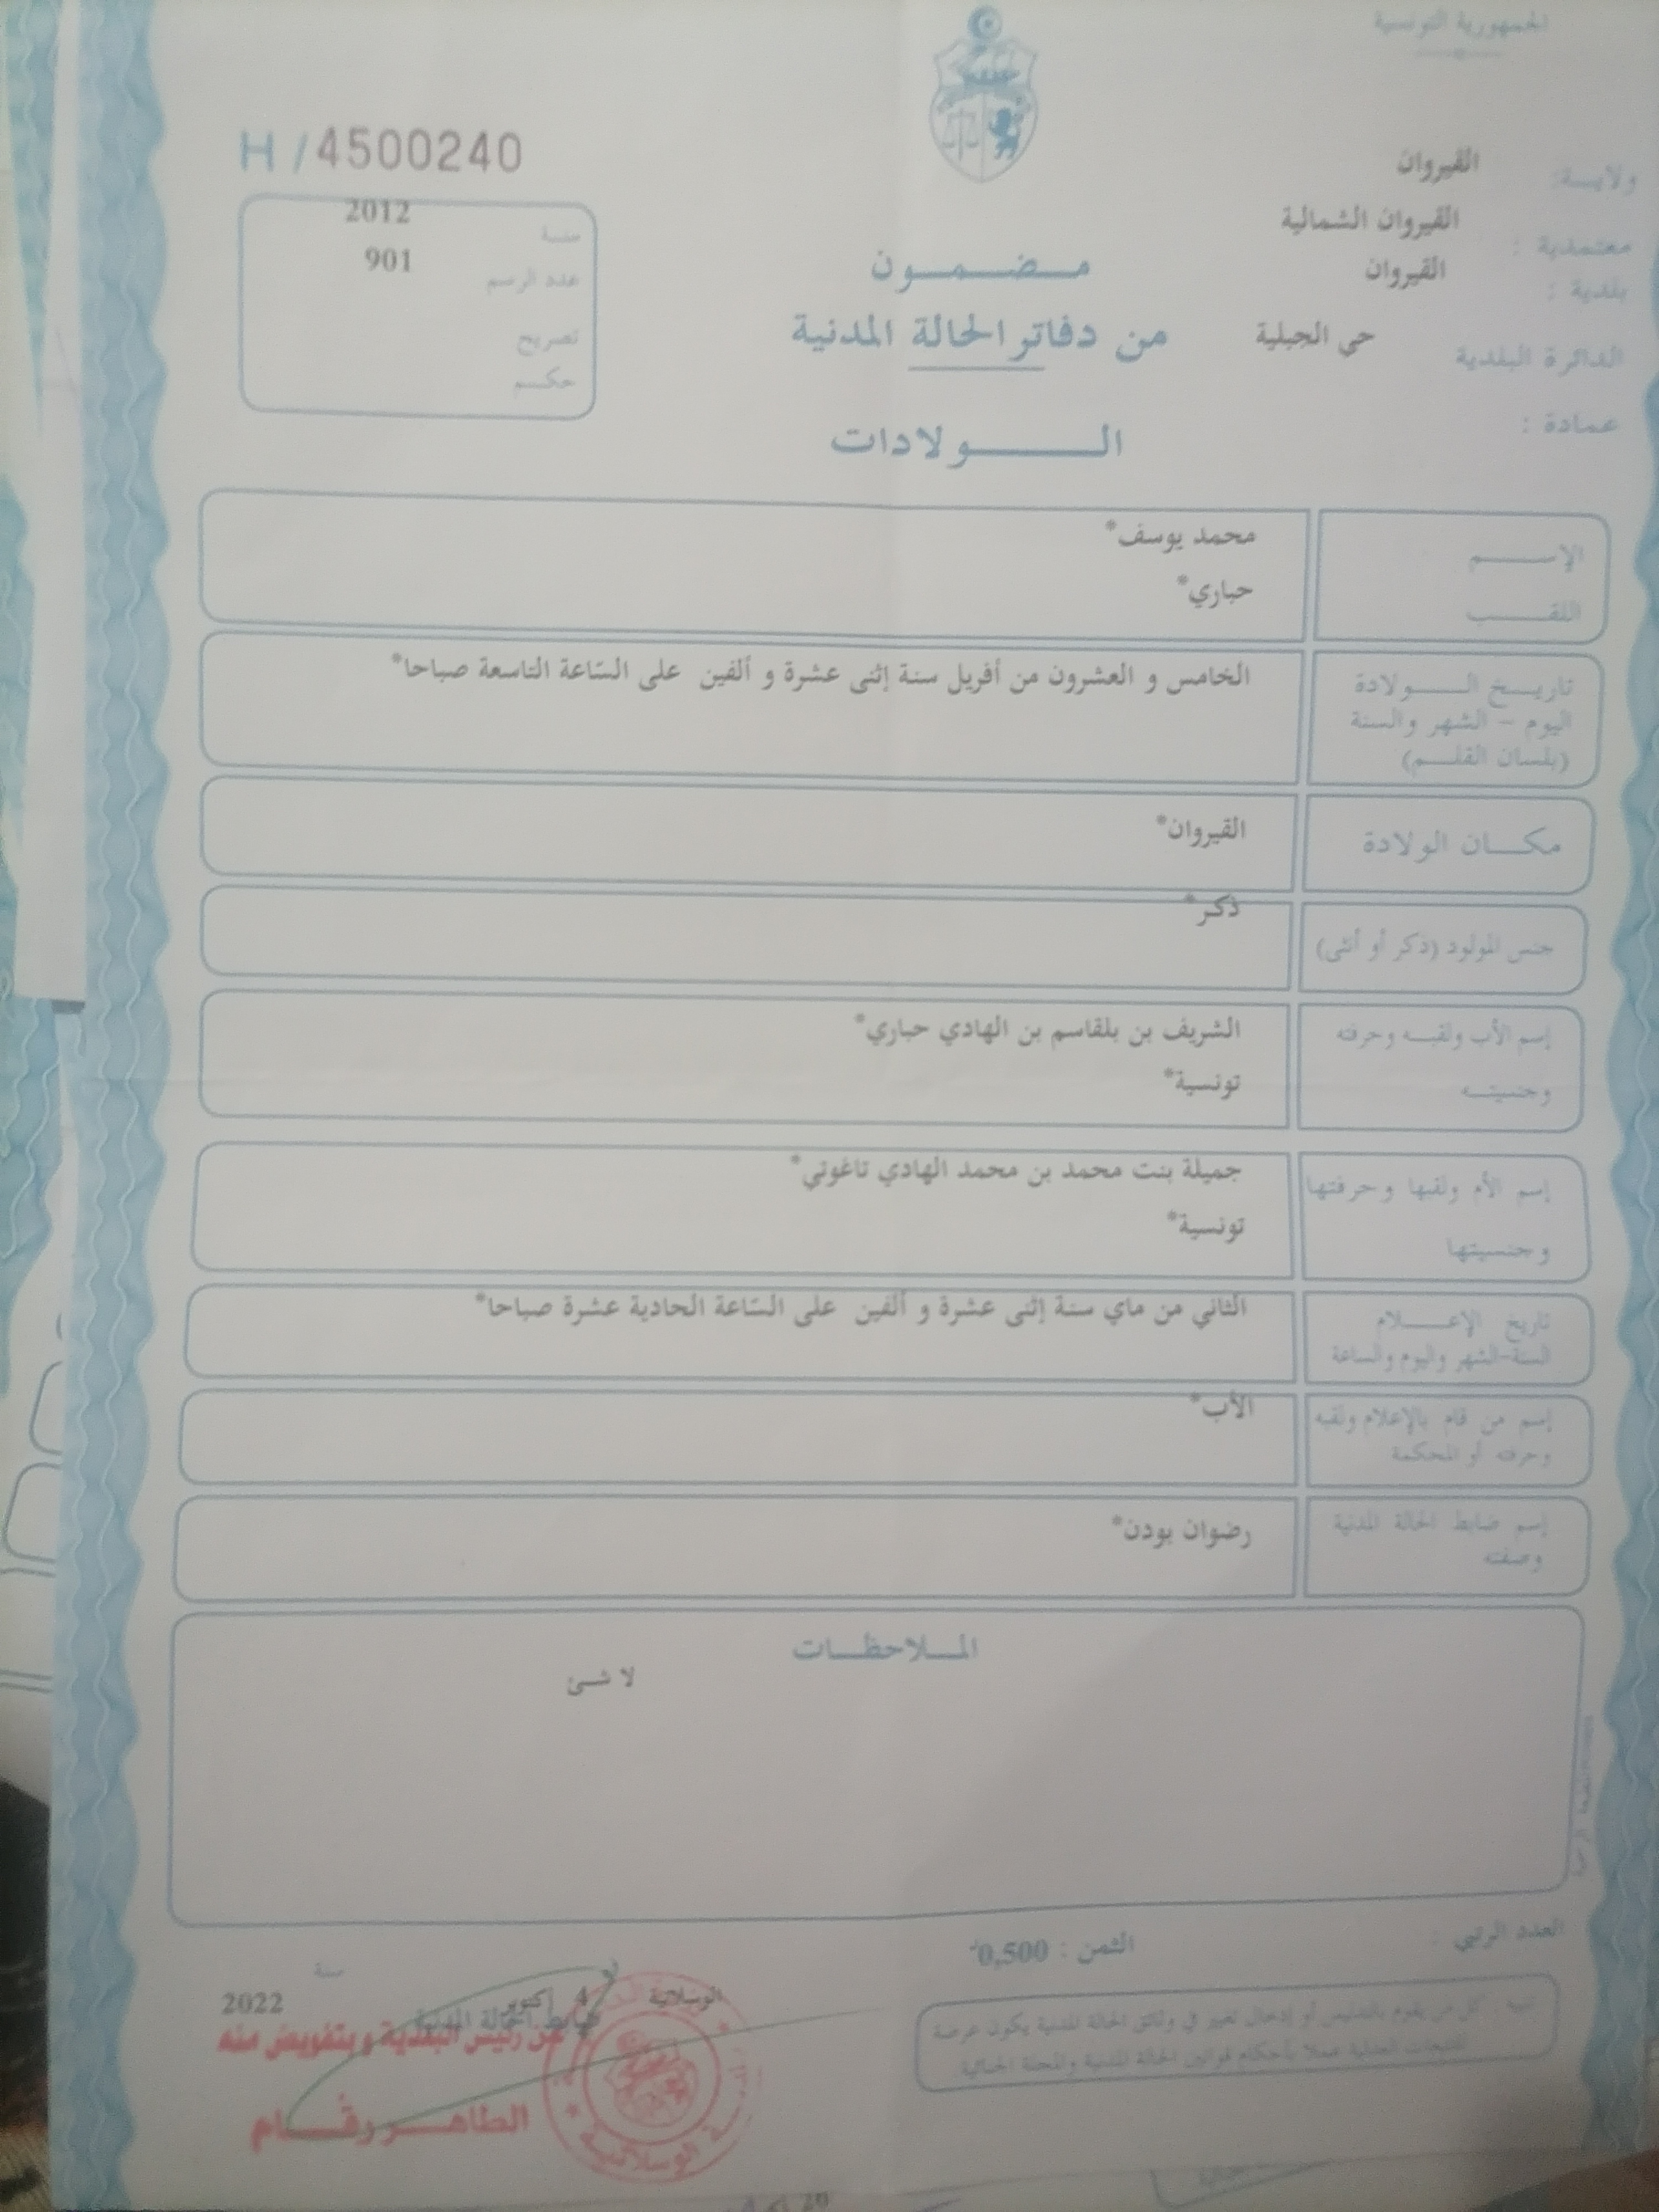 الجمهورية التونسية
H / 4500240
ولايـــة: القيروان
معتمدية : القيروان الشمالية
بلدية : القيروان
الدائرة البلدية حي الجبلية
عمادة :
سنـة 2012
عدد الرسم 901
تصريح
حكـــم
مـــضـــمـــون
من دفاتر الحالة المدنية
الـــــــولادات
الإســــــم محمد يوسف*
اللقـــــب حباري*
تاريـــخ الـــــولادة الخامس و العشرون من أفريل سنة إثنى عشرة و ألفين على السّاعة التاسعة صباحا*
اليوم – الشهر والسنة
(بلسان القلـــم)
مكـــان الولادة القيروان*
جنس المولود (ذكر أو أنثى) ذكر*
إسم الأب ولقبـه وحرفته الشريف بن بلقاسم بن الهادي حباري*
وجنسيتـــه تونسية*
إسم الأم ولقبها وحرفتها جميلة بنت محمد بن محمد الهادي تاغوتي*
وجنسيتها تونسية*
تاريخ الإعــــلام الثاني من ماي سنة إثنى عشرة و ألفين على السّاعة الحادية عشرة صباحا*
السنة-الشهر واليوم والساعة
إسم من قام بالإعلام ولقبه الأب*
وحرفته أو المحكمة
إسم ضابط الحالة المدنية رضوان بودن*
وصفته
المــلاحظــات
لا شئ
العدد الرتبي :
الثمن : 0,500د
تنبيه : كل من يقوم بالتدليس أو إدخال تغيير في وثائق الحالة المدنية يكون عرضة
للتتبعات العدلية عملا بأحكام قوانين الحالة المدنية والمجلة الجنائية
الوسلاتية 4 أكتوبر سنة 2022
ضابط الحالة المدنية
عن رئيس البلدية وبتفويض منه
الطاهـــر رقـــام
الوسلاتية